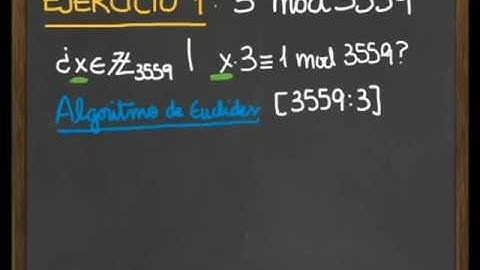 EJERCICIO 1: 3 mod 3559
¿x∈ℤ₃₅₅₉ | x·3≡1 mod 3559?
Algoritmo de Euclides [3559:3]